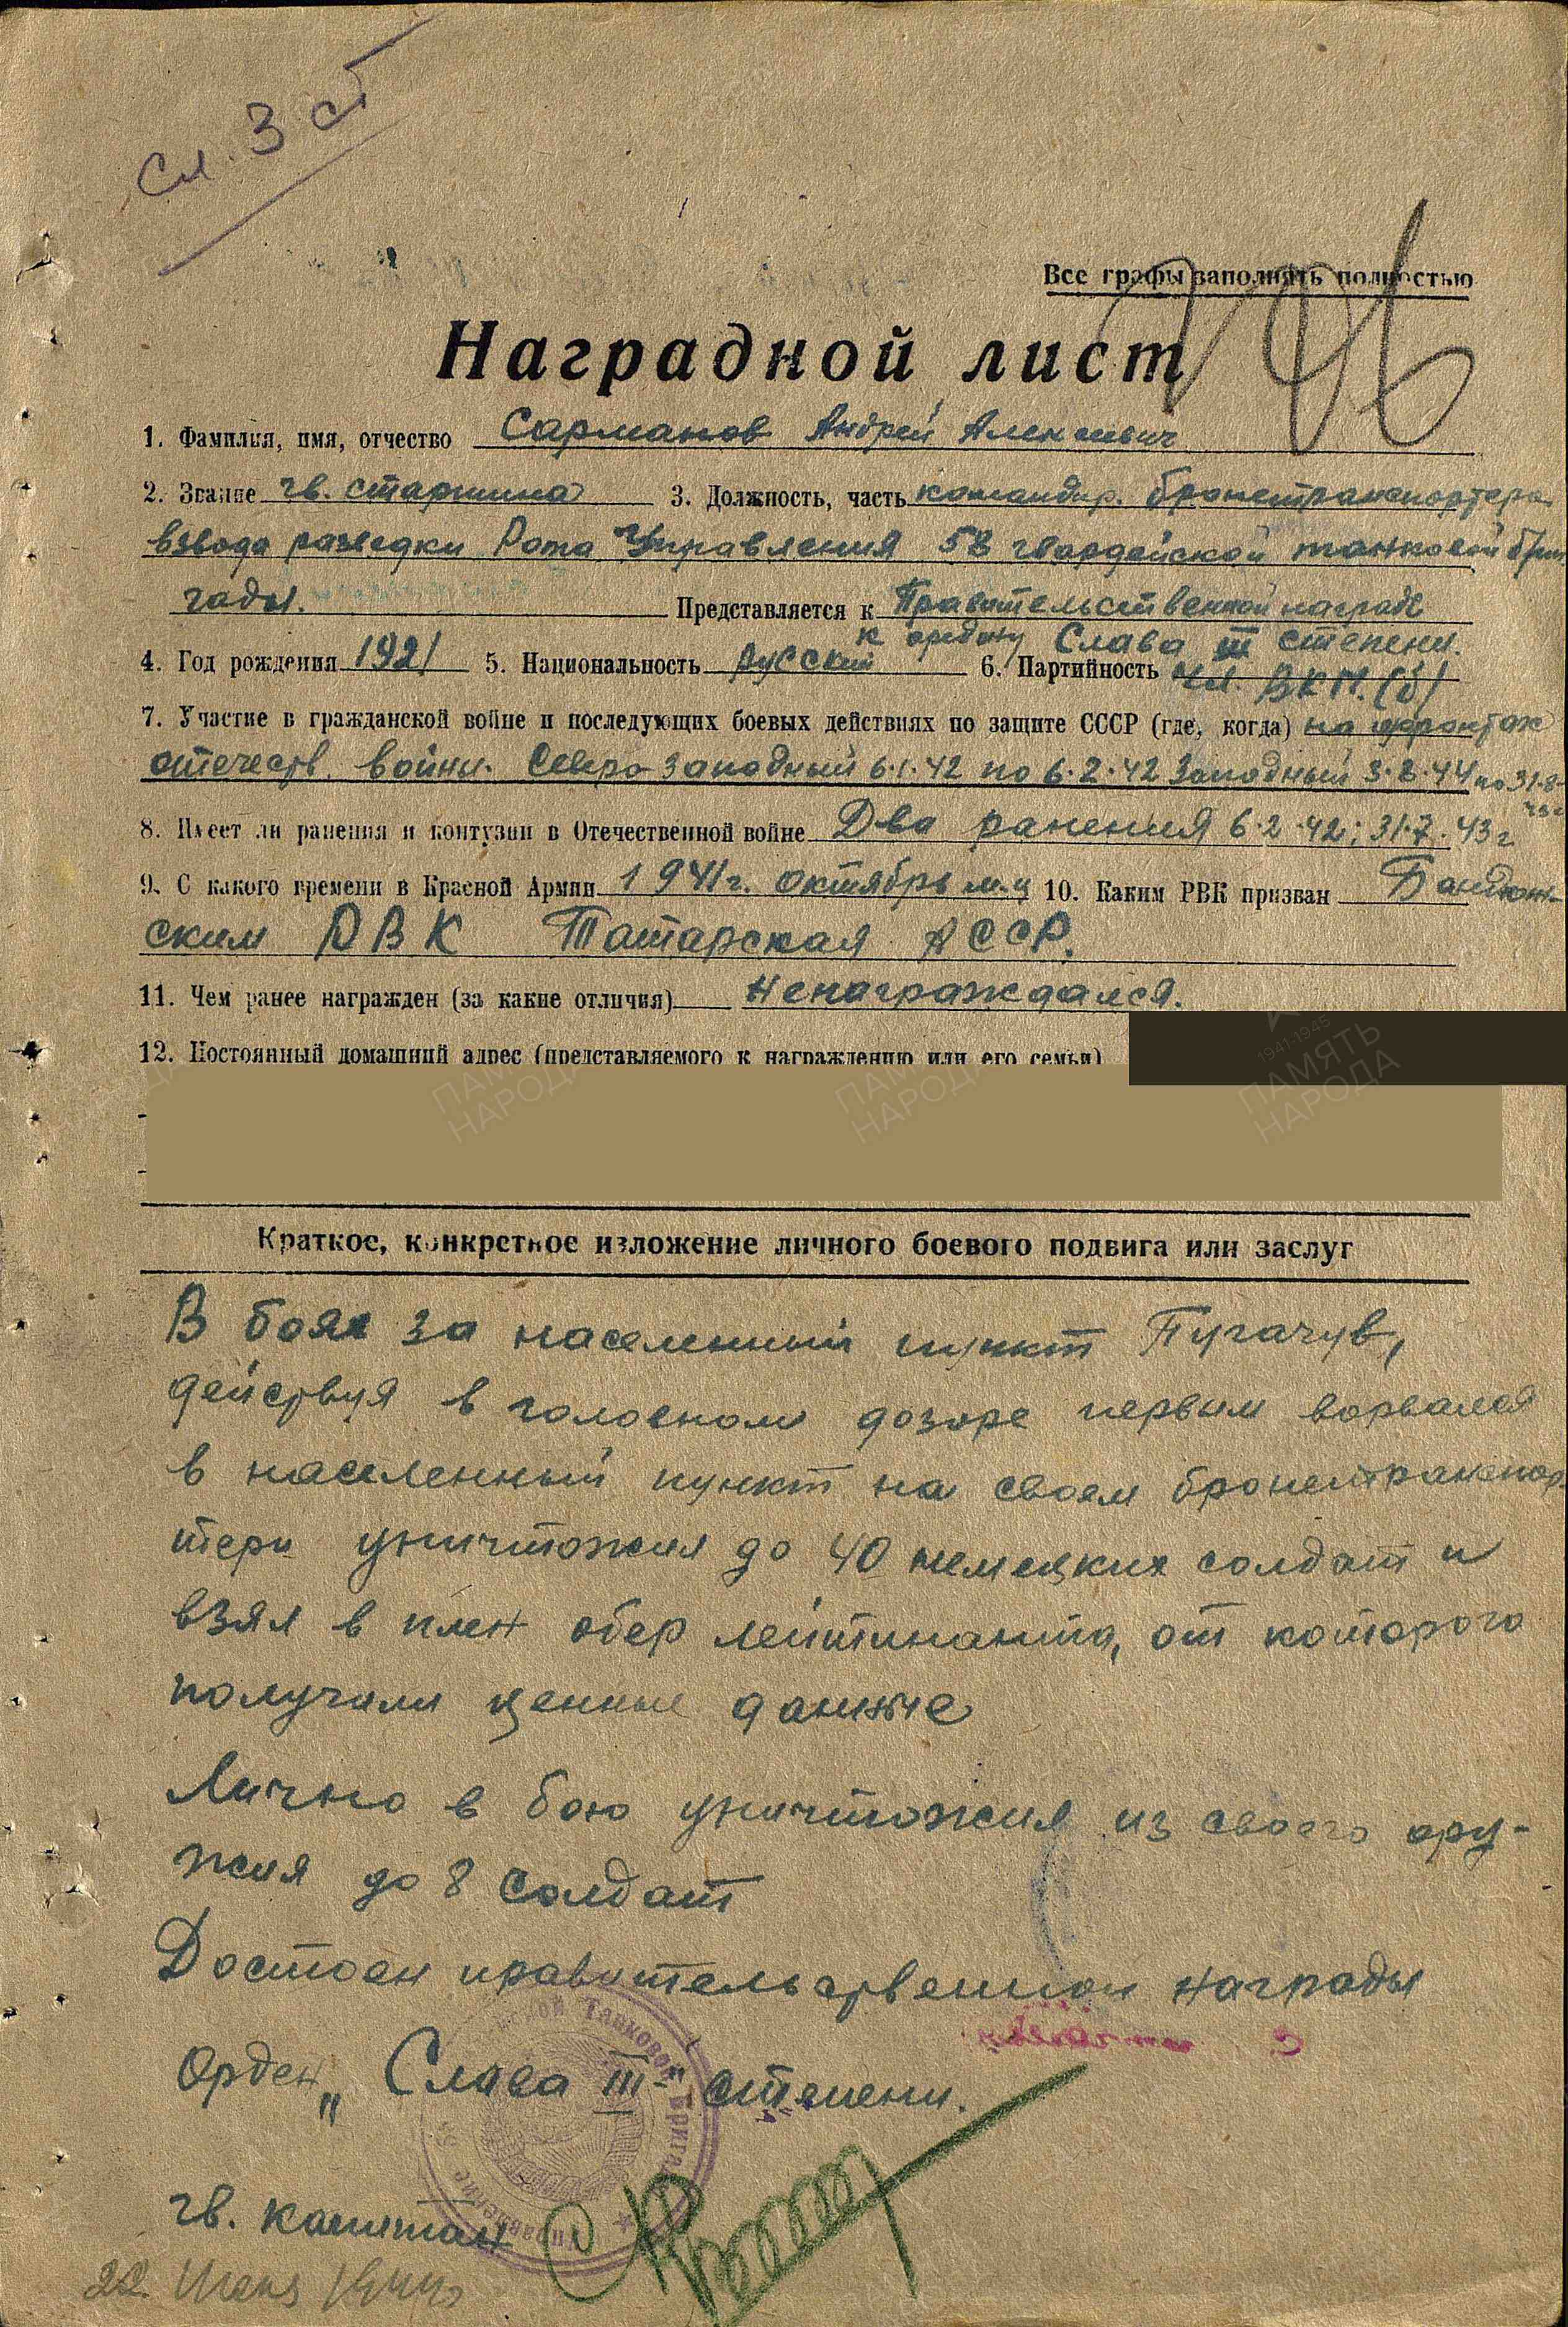 Сл. 3 ст
Все графы заполнять полностью
Наградной лист
1. Фамилия, имя, отчество Сарманов Андрей Алексеевич
2. Звание гв. старшина 3. Должность, часть командир. бронетранспортера
взвода разведки Рота Управления 58 гвардейской танковой бри
гады. Представляется к Правительственной награде
к ордену Слава III степени.
4. Год рождения 1921 5. Национальность русский 6. Партийность чл. ВКП(б)
7. Участие в гражданской войне и последующих боевых действиях по защите СССР (где, когда) на фронтах
отечеств. войны. Северо западный 6.1.42 по 6.2.42 Западный 3.8.44 по 31.8-
8. Имеет ли ранения и контузии в Отечественной войне Два ранения 6.2.42; 31.7.43г
9. С какого времени в Красной Армии 1941г. октябрь м-ц 10. Каким РВК призван
ским РВК Татарская АССР.
11. Чем ранее награжден (за какие отличия) Ненаграждался.
12. Постоянный домашний адрес (представляемого к награждению или его семьи)
1941-1945
ПАМЯТЬ НАРОДА
Краткое, конкретное изложение личного боевого подвига или заслуг
В боях за населенный пункт Пугачув,
действуя в головном дозоре первым ворвался
в населенный пункт на своем бронетранспор
тери уничтожил до 40 немецких солдат и
взял в плен обер лейтинанта, от которого
получили ценные данные
Лично в бою уничтожил из своего ору-
жия до 8 солдат
Достоен правительственной награды
Орден „Слава III-" степени.
гв. капитан
22. Июля 1944г